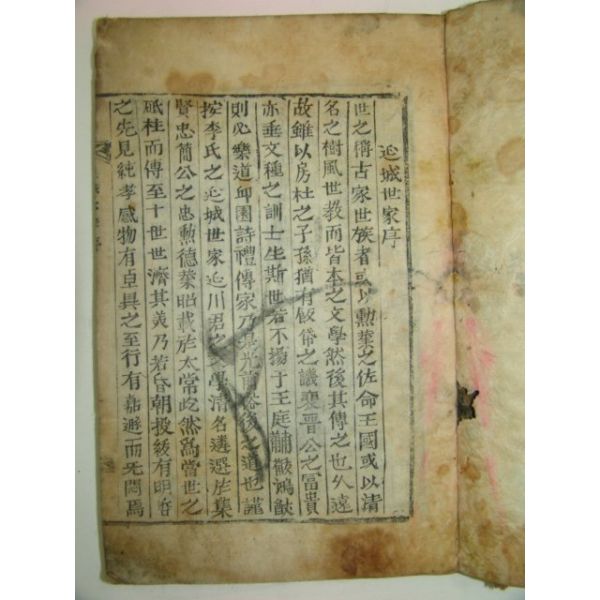 延城世家序
世之稱古家世族者或以勲業之佐命王國或以清
名之樹風世教而皆本之文學然後其傳之也久遠
故雖以房杜之子孫猶有 之議裵晋公之富貴
亦垂文種之訓士生斯世若不揚于王庭黼黻鴻猷
則必樂道邱園詩禮傳家乃 光前 後之道也謹
按李氏之延城世家延川君之文學清名遴選於集
賢忠簡公之忠勲德業昭載於太常屹然爲當世之
砥柱而傳至十世世濟其美乃若昏朝投紱有明哲
之先見純孝感物有卓異之至行有嘉遯而无悶焉